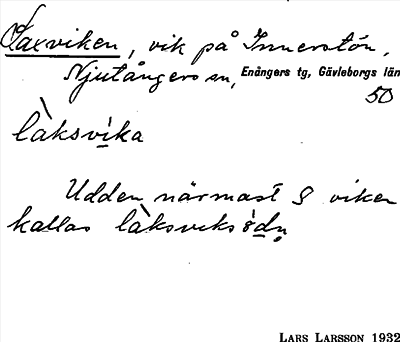 Laxviken, vik på Innerstön,
Njutångers sn, Enångers tg, Gävleborgs län
50
làksvi̱ka
Udden närmast S viken
kallas làksviksö̀dn̥
LARS LARSSON 1932